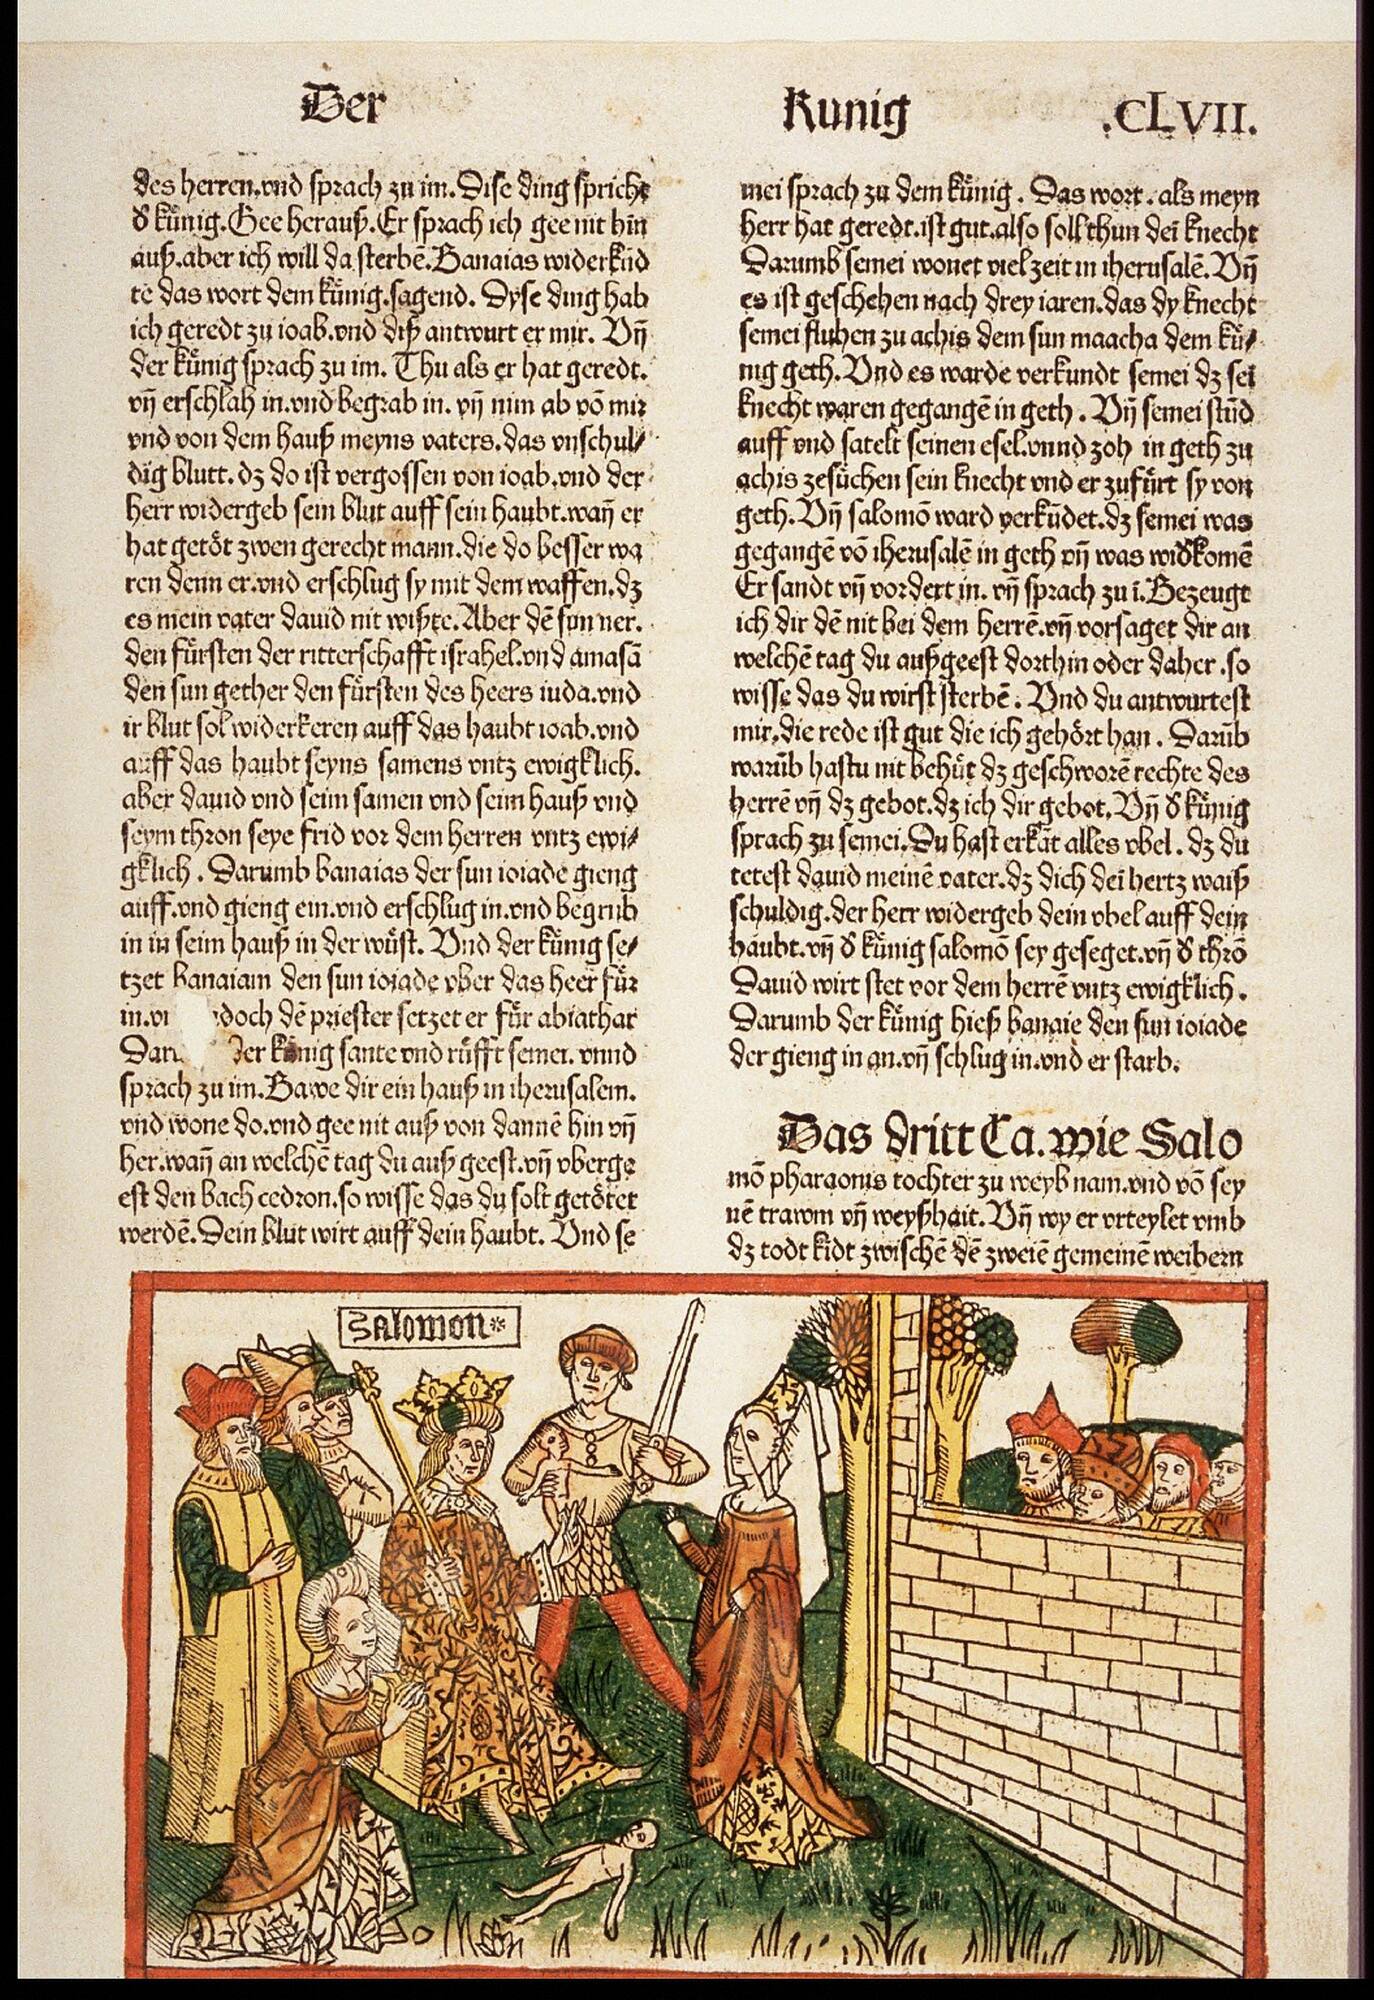 Der Kunig .CLVII.
des herren.vnd sprach zu im. Dise ding spricht
d̕ kúnig. Gee herauß. Er sprach ich gee nit hin
auß.aber ich will da sterbē. Banaias widerkūd
te das wort dem kúnig.sagend. Dyse ding hab
ich geredt zu ioab.vnd diß antwurt er mir. Vn̄
der kúnig sprach zu im. Thu als er hat geredt.
vn̄ erschlah in.vnd begrab in. vn̄ nim ab vō mir
vnd von dem hauß meyns vaters.das vnschul/
dig blutt. dz do ist vergossen von ioab.vnd der
herr widergeb sein blut auff sein haubt.wan̄ er
hat getöt zwen gerecht mann.die do besser wa
ren denn er.vnd erschlug sy mit dem waffen.dz
es mein vater dauid nit wißte. Aber dē sun ner.
den fúrsten der ritterschafft israhel.vnd amasā
den sun gether den fúrsten des heers iuda.vnd
ir blut sol widerkeren auff das haubt ioab.vnd
auff das haubt seyns samens vntz ewigklich.
aber dauid vnd seim samen vnd seim hauß vnd
seym thron seye frid vor dem herren vntz ewi/
gklich . Darumb banaias der sun ioiade gieng
auff.vnd gieng ein.vnd erschlug in.vnd begrub
in in seim hauß in der wúst. Vnd der kúnig se/
tzet banaiam den sun ioiade vber das heer fúr
in. doch dē priester setzet er fúr abiathar
der kúnig sante vnd rúfft semei. vnnd
sprach zu im. Bawe dir ein hauß in iherusalem.
vnd wone do.vnd gee nit auß von dannē hin vn̄
her.wan̄ an welchē tag du auß geest.vn̄ vberge
est den bach cedron.so wisse das du solt getötet
werdē. Dein blut wirt auff dein haubt. Vnd se
mei sprach zu dem kúnig . Das wort . als meyn
herr hat geredt.ist gut.also soll thun deī knecht
Darumb semei wonet viel zeit in iherusalē. Vn̄
es ist geschehen nach drey iaren.das dy knecht
semei fluhen zu achis dem sun maacha dem kú/
nig geth. Vnd es warde verkundt semei dz sei
knecht waren gegangē in geth . Vn̄ semei stūd
auff vnd satelt seinen esel.vnnd zoh in geth zu
achis zesúchen sein knecht vnd er zufúrt sy von
geth. Vn̄ salomō ward verkūdet.dz semei was
gegangē vō iherusalē in geth vn̄ was wid̕komē
Er sandt vn̄ vordert in. vn̄ sprach zu ī. Bezeugt
ich dir dē nit bei dem herrē.vn̄ vorsaget dir an
welchē tag du außgeest dorthin oder daher .so
wisse das du wirst sterbē . Vnd du antwurtest
mir.die rede ist gut die ich gehört han . Darūb
warūb hastu nit behút dz geschworē rechte des
herrē vn̄ dz gebot.dz ich dir gebot. Vn̄ d̕ kúnig
sprach zu semei. Du hast erkāt alles vbel . dz du
tetest dauid meinē vater.dz dich deī hertz waiß
schuldig.der herr widergeb dein vbel auff dein
haubt.vn̄ d̕ kúnig salomō sey geseget.vn̄ d̕ thrō
Dauid wirt stet vor dem herrē vntz ewigklich .
Darumb der kúnig hieß banaie den sun ioiade
der gieng in an.vn̄ schlug in.vnd er starb.
Das dritt Ca. wie Salo
mō pharaonis tochter zu weyb nam.vnd vō sey
nē trawm vn̄ weyßhait. Vn̄ wy er vrteylet vmb
dz todt kīdt zwischē dē zweiē gemeinē weibern
Salomon